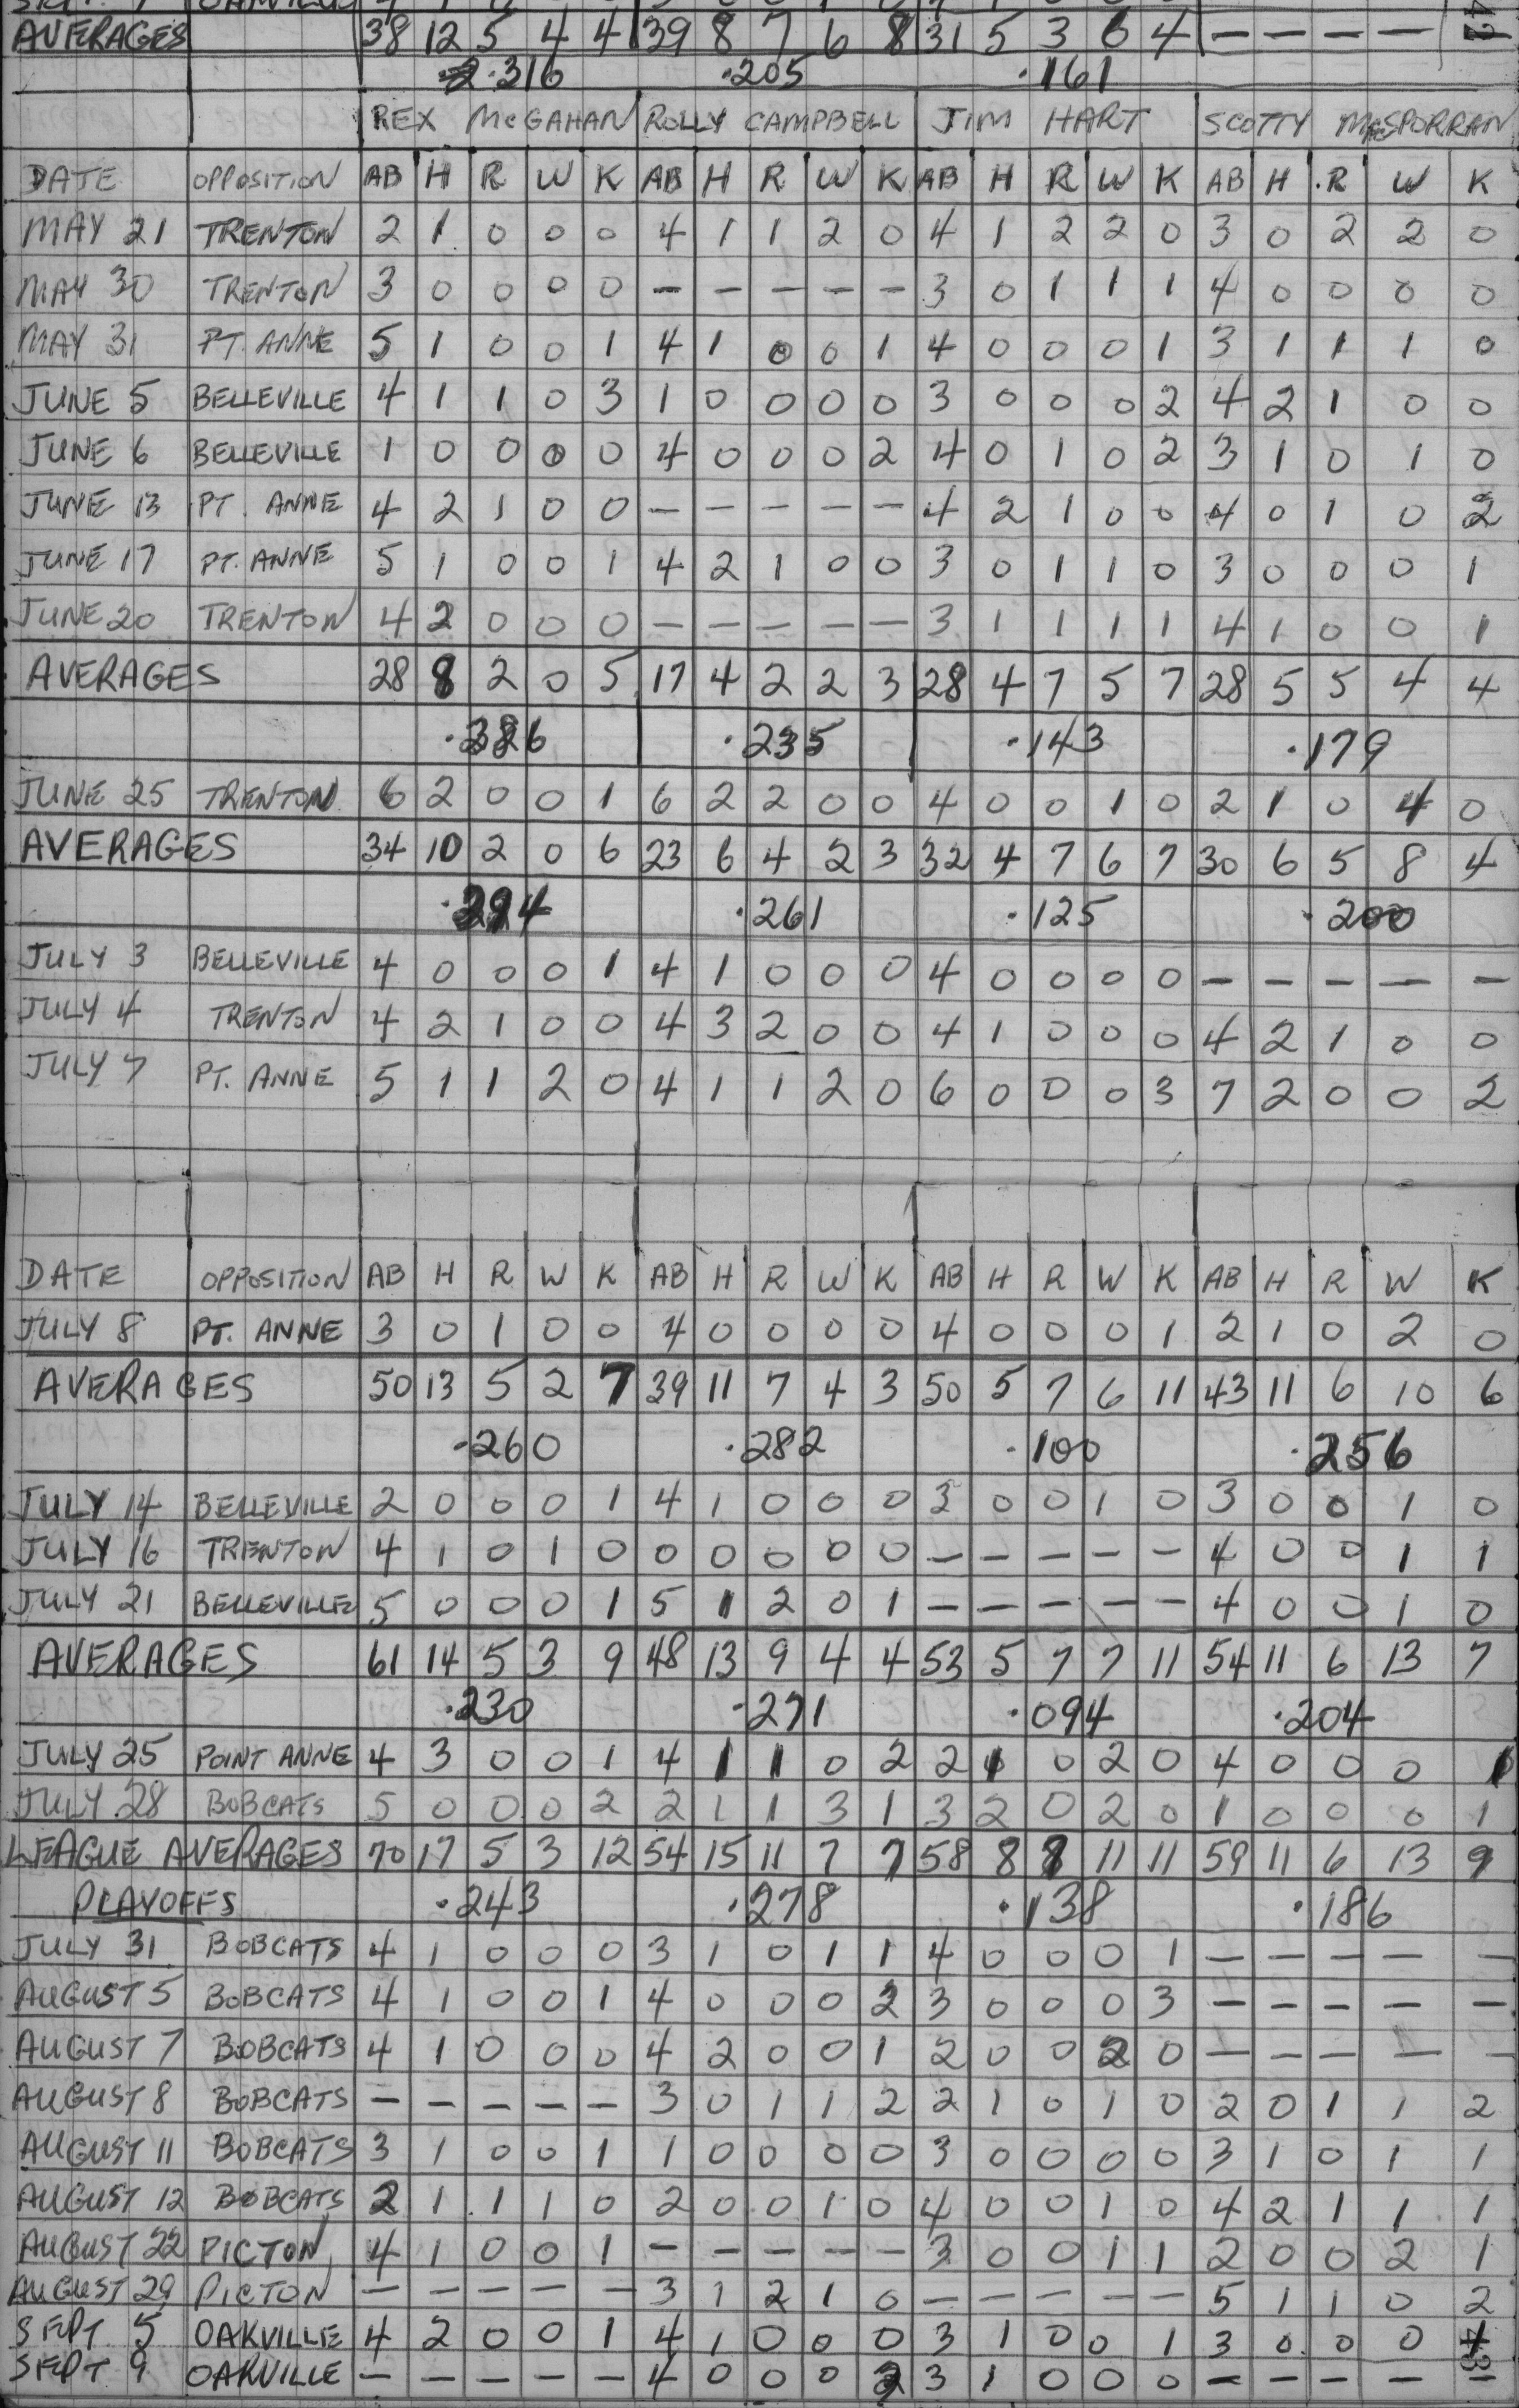 AVERAGES 38 12 5 4 4 39 8 7 6 8 31 5 3 6 4 — — — — 42
.316 .205 .161
REX McGAHAN ROLLY CAMPBELL JIM HART SCOTTY McSPORRAN
DATE OPPOSITION AB H R W K AB H R W K AB H R W K AB H R W K
MAY 21 TRENTON 2 1 0 0 0 4 1 1 2 0 4 1 2 2 0 3 0 2 2 0
MAY 30 TRENTON 3 0 0 0 0 — — — — — 3 0 1 1 1 4 0 0 0 0
MAY 31 PT. ANNE 5 1 0 0 1 4 1 0 0 1 4 0 0 0 1 3 1 1 1 0
JUNE 5 BELLEVILLE 4 1 1 0 3 1 0 0 0 0 3 0 0 0 2 4 2 1 0 0
JUNE 6 BELLEVILLE 1 0 0 0 0 4 0 0 0 2 4 0 1 0 2 3 1 0 1 0
JUNE 13 PT. ANNE 4 2 1 0 0 — — — — — 4 2 1 0 0 4 0 1 0 2
JUNE 17 PT. ANNE 5 1 0 0 1 4 2 1 0 0 3 0 1 1 0 3 0 0 0 1
JUNE 20 TRENTON 4 2 0 0 0 — — — — — 3 1 1 1 1 4 1 0 0 1
AVERAGES 28 8 2 0 5 17 4 2 2 3 28 4 7 5 7 28 5 5 4 4
.235 .143 .179
JUNE 25 TRENTON 6 2 0 0 1 6 2 2 0 0 4 0 0 1 0 2 1 0 4 0
AVERAGES 34 10 2 0 6 23 6 4 2 3 32 4 7 6 7 30 6 5 8 4
.294 .261 .125 .200
JULY 3 BELLEVILLE 4 0 0 0 1 4 1 0 0 0 4 0 0 0 0 — — — — —
JULY 4 TRENTON 4 2 1 0 0 4 3 2 0 0 4 1 0 0 0 4 2 1 0 0
JULY 7 PT. ANNE 5 1 1 2 0 4 1 1 2 0 6 0 0 0 3 7 2 0 0 2
DATE OPPOSITION AB H R W K AB H R W K AB H R W K AB H R W K
JULY 8 PT. ANNE 3 0 1 0 0 4 0 0 0 0 4 0 0 0 1 2 1 0 2 0
AVERAGES 50 13 5 2 7 39 11 7 4 3 50 5 7 6 11 43 11 6 10 6
.260 .282 .100 .256
JULY 14 BELLEVILLE 2 0 0 0 1 4 1 0 0 0 3 0 0 1 0 3 0 0 1 0
JULY 16 TRENTON 4 1 0 1 0 0 0 0 0 0 — — — — — 4 0 0 1 1
JULY 21 BELLEVILLE 5 0 0 0 1 5 1 2 0 1 — — — — — 4 0 0 1 0
AVERAGES 61 14 5 3 9 48 13 9 4 4 53 5 7 7 11 54 11 6 13 7
.230 .271 .094 .204
JULY 25 POINT ANNE 4 3 0 0 1 4 1 1 0 2 2 1 0 2 0 4 0 0 0 1
JULY 28 BOBCATS 5 0 0 0 2 2 1 1 3 1 3 2 0 2 0 1 0 0 0 1
LEAGUE AVERAGES 70 17 5 3 12 54 15 11 7 7 58 8 8 11 11 59 11 6 13 9
PLAYOFFS .243 .278 .138 .186
JULY 31 BOBCATS 4 1 0 0 0 3 1 0 1 1 4 0 0 0 1 — — — — —
AUGUST 5 BOBCATS 4 1 0 0 1 4 0 0 0 2 3 0 0 0 3 — — — — —
AUGUST 7 BOBCATS 4 1 0 0 0 4 2 0 0 1 2 0 0 2 0 — — — — —
AUGUST 8 BOBCATS — — — — — 3 0 1 1 2 2 1 0 1 0 2 0 1 1 2
AUGUST 11 BOBCATS 3 1 0 0 1 1 0 0 0 0 3 0 0 0 0 3 1 0 1 1
AUGUST 12 BOBCATS 2 1 1 1 0 2 0 0 1 0 4 0 0 1 0 4 2 1 1 1
AUGUST 22 PICTON 4 1 0 0 1 — — — — — 3 0 0 1 1 2 0 0 2 1
AUGUST 29 PICTON — — — — — 3 1 2 1 0 — — — — — 5 1 1 0 2
SEPT. 5 OAKVILLE 4 2 0 0 1 4 1 0 0 0 3 1 0 0 1 3 0 0 0 1
SEPT 9 OAKVILLE — — — — — 4 0 0 0 2 3 1 0 0 0 — — — —
43